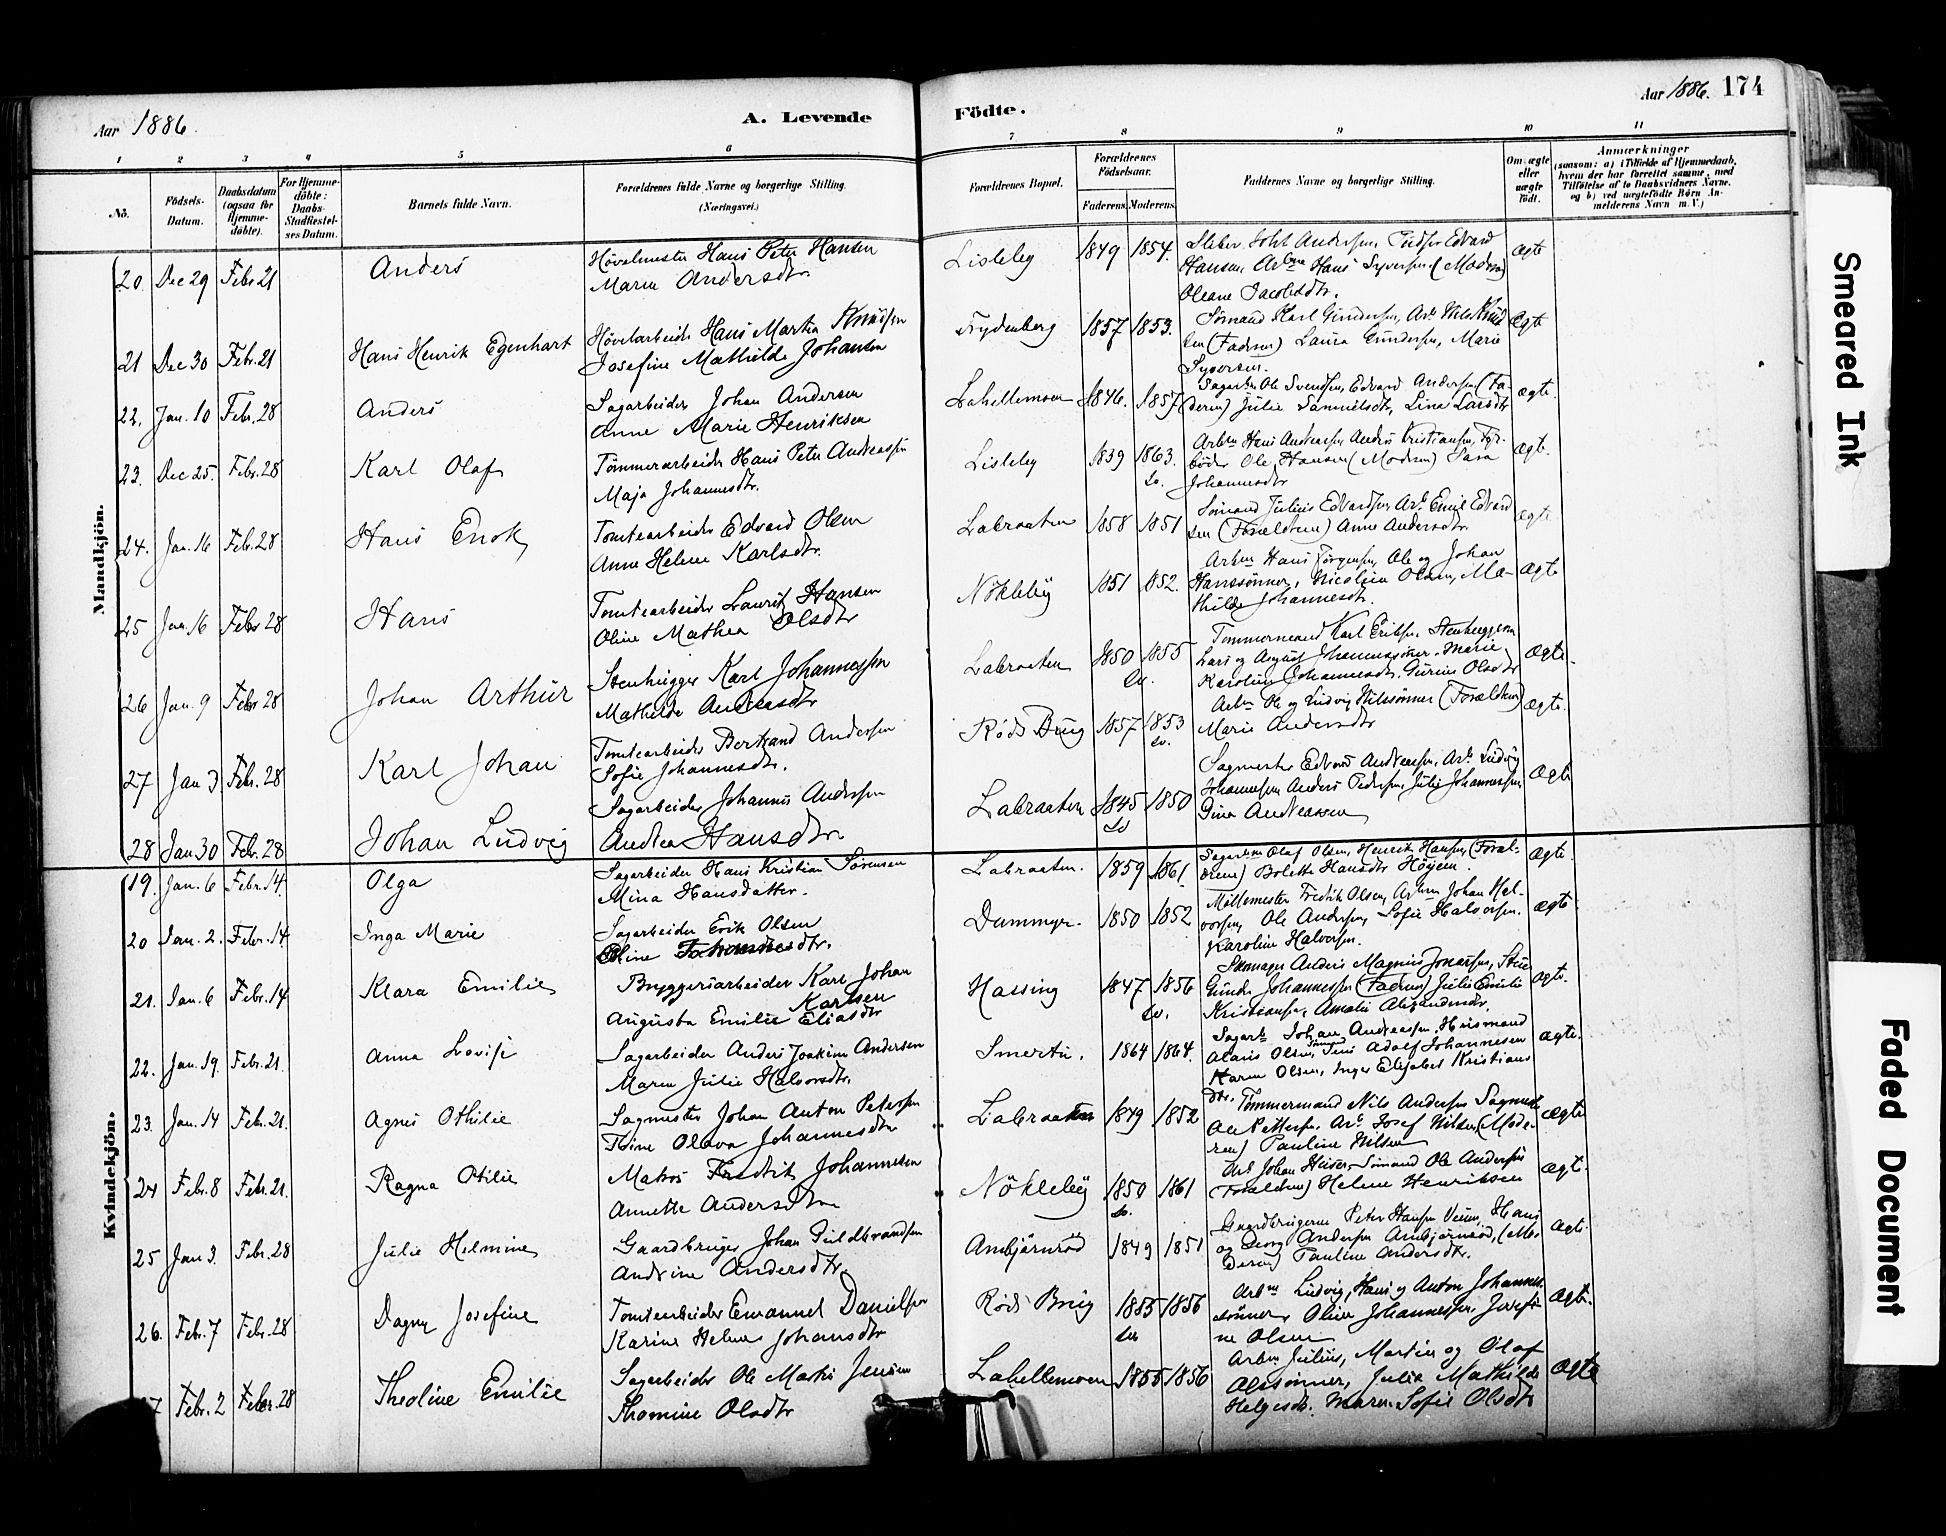 Aar 1886.
A. Levende
Födte.
Aar 1886. 174
1 2 3 4 5 6 7 8 9 10 11
No.
Födsels-
Datum.
Daabsdatum
(ogsaa for
Hjemme-
döbte).
For Hjemme-
döbte:
Daabs-
Stadfæstel-
ses Datum.
Barnets fulde Navn.
Forældrenes fulde Navne og borgerlige Stilling.
(Næringsvei.)
Forældrenes Bopæl.
Forældrenes
Födselsaar.
Faderens. Moderens.
Faddernes Navne og borgerlige Stilling.
Om ægte
eller
uægte
födt.
Anmærkninger
(saasom: a) i Tilfælde af Hjemmedaab,
hvem der har forrettet samme, med
Tilföielse af to Daabsvidners Navne.
og b) ved uægtefödte Börn An-
melderens Navn m. V.)
Mandkjön.
20. Dec 29 Febr 21 Anders
Høvelmester Hans Peter Hansen
Maren Andersdtr.
Lisleby 1849 1854.
Hansen, Hans Syversen (Moderen)
Oleane Jacobsdtr.
ægte
21 Dec 30 Febr. 21 Hans Henrik Egenhart
Høvelarbeider Hans Martin Knudsen
Josefine Mathilde Johansen
Trydenborg 1857 1853.
Sømand Karl Gundersen, Arb. Nils Knud
sen (Faderen) Laura Gundersen, Marie
Syversen.
Ægte
22. Jan. 10 Febr. 28 Anders
Sagarbeider Johan Andersen
Anne Marie Henriksen
Lahellemoen 1846. 1857
Ole Svendsen, Edvard Andersen (Fa-
deren) Julie Samuelsdtr, Lina Larsdtr
ægte.
23. Dec 25. Febr. 28 Karl Olaf
Tømmerarbeider Hans Peter Andreassen
Maja Johannesdtr.
Lisleby 1839 1863.
Sv.
Arbm Hans Andreassen, Anders Kristiansen, Fyr-
bøder Ole Hansen (Moderen) Sara
Johannesdtr
ægte.
24. Jan. 16 Febr. 28 Hans Enok
Tomtearbeider Edvard Olsen
Anne Helene Karlsdtr.
Labraaten 1858 1851
Sømand Julius Edvardsen, Arb. Emil Edvard
sen (Forældrene) Anne Andersdtr.
ægte
25 Jan. 16 Febr 28 Hans
Tomtearbeider Laurits Hansen
Oline Mathea Olsdtr
Nökleby 1851 1852.
Arbm Hans Jørgensen, Ole og Johan
Hanssønner, Nicoline Olsen, Ma-
thilde Johannesdtr.
ægte
26 Jan. 9 Febr 28 Johan Arthur
Stenhugger Karl Johannessen
Mathilde Andreasdtr
Labraaten 1850 1855
Sv.
Tømmermand Karl Eriksen, Stenhuggerne
Lars og August Johannessønner, Marie
Karoline Johannesdtr. Gurine Olsdtr
ægte.
27 Jan 3 Febr. 28 Karl Johan
Tomtearbeider Bertrand Andersen
Sofie Johannesdtr.
Røds Brug 1857 1853
Sv.
Arbm Ole og Ludvig Nilssønner (Forældrene)
Marie Andersdtr
ægte.
28 Jan 30 Febr. 28 Johan Ludvig
Sagarbeider Johannes Andersen
Andrea Hansdtr.
Labraaten 1845 1850
Sv
Sagmester Edvard Andreassen, Arb. Ludvig
Johannessen Anders Pedersen, Julie Johannessen,
Gina Andreassen
ægte
Kvindekjön.
19. Jan. 6 Febr. 14. Olga
Sagarbeider Hans Kristian Sørensen
Mina Hansdatter.
Labraaten. 1859 1861.
Sagarbm Olaf Olsen, Henrik Hansen, (Foræl-
drene) Bolette Hansdtr Høyem.
ægte.
20 Jan. 2. Febr. 14 Inga Marie
Sagarbeider Erik Olsen
Oline Johannesdtr.
Dammyr. 1850 1852
Møllemester Fredrik Olsen, Arbm Johan Hal-
vorsen, Ole Andersen, Sofie Halvorsen.
Karoline Halvorsen.
ægte.
21. Jan. 6 Febr. 14 Klara Emilie
Bryggeriarbeider Karl Johan
Karlsen
Augusta Emilie Eliasdtr
Hassing 1847 1856
Sv.
Skomager Anders Magnus Jonassen,
Johannessen (Faderen) Julie Emilie
Kristiansen, Amalie Alexandersdtr.
ægte.
22. Jan. 19. Febr. 21. Anna Lovise
Sagarbeider Anders Joakim Andersen
Maren Julie Halvorsdtr.
Smertu. 1864 1864.
Sagarb Johan Andreassen, Husmand
Sømand
Olaus Olsen, Jens Adolf Johannesen
Karen Olsen, Inger Elisabet Kristians
dtr.
ægte.
23. Jan. 14 Febr. 21. Agnes Othilie
Sagmester Johan Anton Petersen
Trine Olava Johannesdtr
Labraaten 1849 1852
Tømmermand Nils Andersen Sagmester
Ole Pettersen, Arb. Josef Nilsen (Mode-
ren) Pauline Nilsen
ægte
24 Febr. 8 Febr. 21. Ragna Otilie
Matros Fredrik Johannesen
Annette Andersdtr
Nökleby 1850 1861
Sv.
Arb Johan Huser, Sømand Ole Andersen
(Forældrene) Helene Henriksen
ægte.
25 Jan 3. Febr. 28 Julie Helmine
Gaardbruger Johan Guldbrandsen
Andrine Andersdtr.
Ambjørnrød 1849 1851
Gaardbrugerne Peter Hansen Veum, Hans
og Georg Andersen Ambjørnrød, (Mo-
deren) Pauline Andersdtr.
ægte.
26. Febr. 7 Febr. 28 Dagny Josefine
Tomtearbeider Emanuel Danielsen
Karine Helene Johansdtr
Røds Brug 1855 1856
Sv
Arbm Ludvig, Hans og Anton Johannes-
sønner Oline Johannessen, Josefi-
ne Olsen
ægte.
7 Febr. 2 Febr. 28 Theoline Emilie
Sagarbeider Ole Martin Jensen
Thomine Olsdtr
Lahellemoen 1855 1856
Arbm Julius, Martin og Olaf
Olssønner, Julie Mathilde
Helgesdtr. Maren Sofie Olsdtr
ægte
Smeared Ink
Faded Document